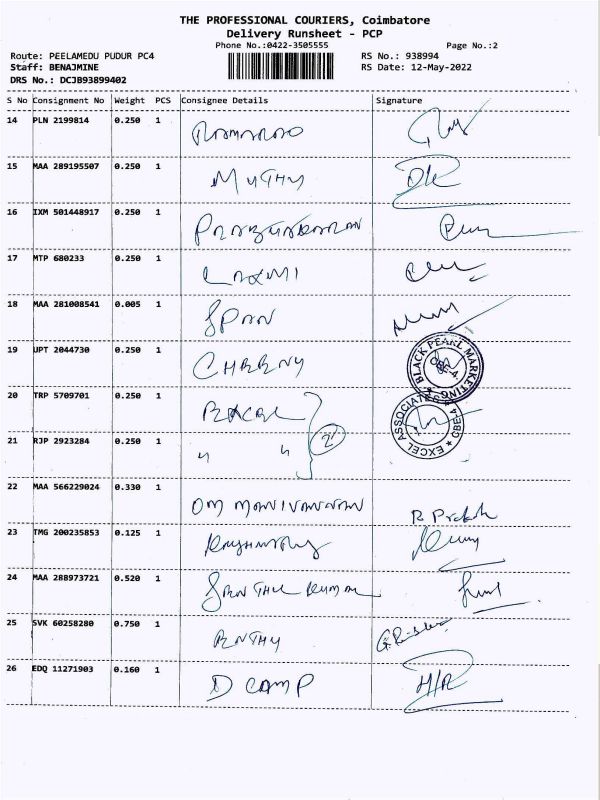 THE PROFESSIONAL COURIERS, Coimbatore
Delivery Runsheet - PCP
Phone No.:0422-3505555 Page No.:2
Route: PEELAMEDU PUDUR PC4 RS No.: 938994
Staff: BENAJMINE RS Date: 12-May-2022
DRS No.: DCJB93899402
S No Consignment No Weight PCS Consignee Details Signature
14 PLN 2199814 0.250 1 RAMARAO
15 MAA 289195507 0.250 1 MUTHU
16 IXM 501448917 0.250 1 PRABHAKARAN
17 MTP 680233 0.250 1 LAXMI
18 MAA 281008541 0.005 1 SPAN
19 UPT 2044730 0.250 1 BLACK PEARL MARKETING CBE-4
20 TRP 5709701 0.250 1 EXCEL ASSOCIATES CBE4
21 RJP 2923284 0.250 1 " " 2
22 MAA 566229024 0.330 1 OM MANIVANNAN R Prakash
23 TMG 200235853 0.125 1
24 MAA 288973721 0.520 1 SENTHIL KUMAR
25 SVK 60258280 0.750 1
26 EDQ 11271903 0.160 1 D CAMP H/R